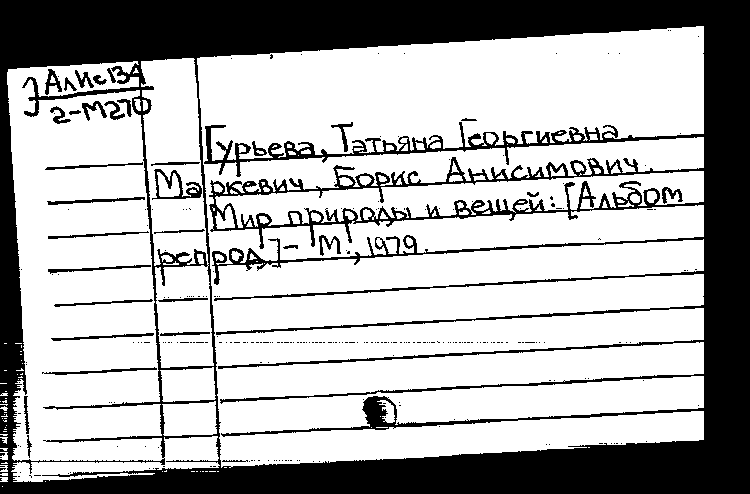 АлИс134
2-М270
Гурьева, Татьяна Георгиевна.
Маркевич, Борис Анисимович.
Мир природы и вещей: [Альбом
репрод.] - М., 1979.